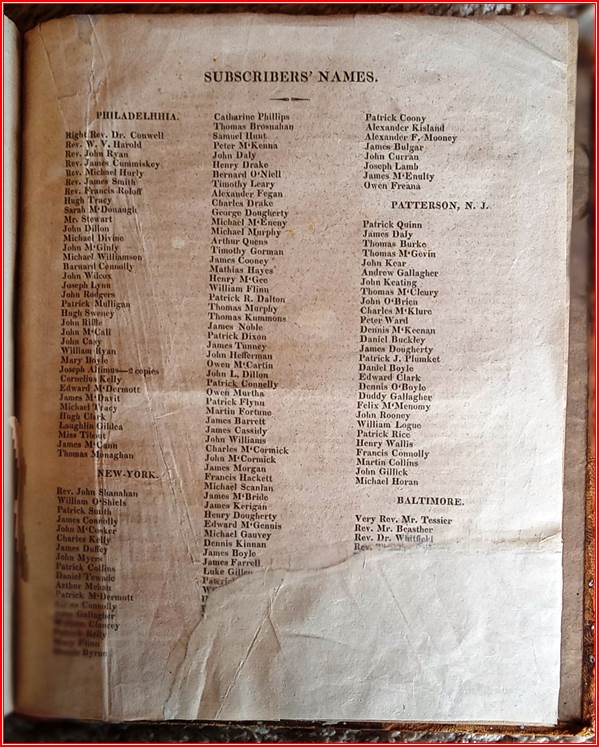 SUBSCRIBERS' NAMES.
PHILADELHHIA.
Right Rev. Dr. Conwell
Rev. W. V. Harold
Rev. John Ryan
Rev. James Cummiskey
Rev. Michael Hurly
Rev. James Smith
Rev. Francis Roloff
Hugh Tracy
Sarah M'Donaugh
Mr. Stewart
John Dillon
Michael Divine
John M'Ginly
Michael Williamson
Barnard Connolly
John Wilcox
Joseph Lynn
John Rodgers
Patrick Mulligan
Hugh Sweney
John Riffle
John M'Call
John Casy
William Ryan
Mary Boyle
Joseph Altimus—2 copies
Cornelius Kelly
Edward M'Dermott
James M'Davit
Michael Tracy
Hugh Clark
Laughlin Gildea
Miss
James M'Cann
Thomas Monaghan
NEW-YORK.
Rev. John Shanahan
William O'Shiels
Patrick Smith
James Connolly
John M'Cosker
Charles Kelly
James Duffey
John Myers
Patrick Collins
Daniel
Arthur Mehan
Patrick M'Dermott
Connolly
Gallagher
Clancey
Patrick Reily
Flinn
Byrne
Catharine Phillips
Thomas Brosnahan
Samuel Hunt
Peter M'Kenna
John Daly
Henry Drake
Bernard O'Niell
Timothy Leary
Alexander Fegan
Charles Drake
George Dougherty
Michael M'Eneny
Michael Murphy
Arthur Quens
Timothy Gorman
James Cooney
Mathias Hayes
Henry M'Gee
William Flinn
Patrick R. Dalton
Thomas Murphy
Thomas Kummons
James Noble
Patrick Dixon
James Tunney
John Hefferman
Owen M'Cartin
John L. Dillon
Patrick Connelly
Owen Murtha
Patrick Flynn
Martin Fortune
James Barrett
James Cassidy
John Williams
Charles M'Cormick
John M'Cormick
James Morgan
Francis Hackett
Michael Scanlan
James M'Bride
James Kerigan
Henry Dougherty
Edward M'Gennis
Michael Gauvey
Dennis Kinnan
James Boyle
James Farrell
Luke
Patrick Coony
Alexander Kisland
Alexander F. Mooney
James Bulgar
John Curran
Joseph Lamb
James M'Enulty
Owen Freana
PATTERSON, N. J.
Patrick Quinn
James Daly
Thomas Burke
Thomas M'Gevin
John Kear
Andrew Gallagher
John Keating
Thomas M'Cleury
John O'Brien
Charles M'Klure
Peter Ward
Dennis M'Keenan
Daniel Buckley
James Dougherty
Patrick J. Plumket
Daniel Boyle
Edward Clark
Dennis O'Boyle
Duddy Gallagher
Felix M'Menomy
John Rooney
William Logue
Patrick Rice
Henry Wallis
Francis Connolly
Martin Collins
John Gillick
Michael Horan
BALTIMORE.
Very Rev. Mr. Tessier
Rev. Mr. Beasther
Rev. Dr. Whitfield
Rev.